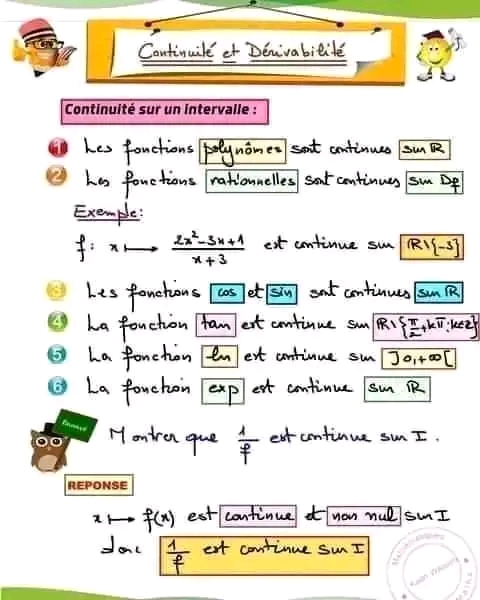 Continuité et Dérivabilité
Continuité sur un intervalle :
1 Les fonctions polynômes sont continues sur ℝ
2 Les fonctions rationnelles sont continues sur Df
Exemple:
f: x ⟼ (2x²-3x+1)/(x+3) est continue sur ℝ\{-3}
3 Les fonctions cos et sin sont continues sur ℝ
4 La fonction tan est continue sur ℝ\{π/2+kπ; k∈Z}
5 La fonction ln est continue sur ]0,+∞[
6 La fonction exp est continue sur ℝ
Montrer que 1/f est continue sur I.
REPONSE
x ⟼ f(x) est continue et non nul sur I
donc 1/f est continue sur I